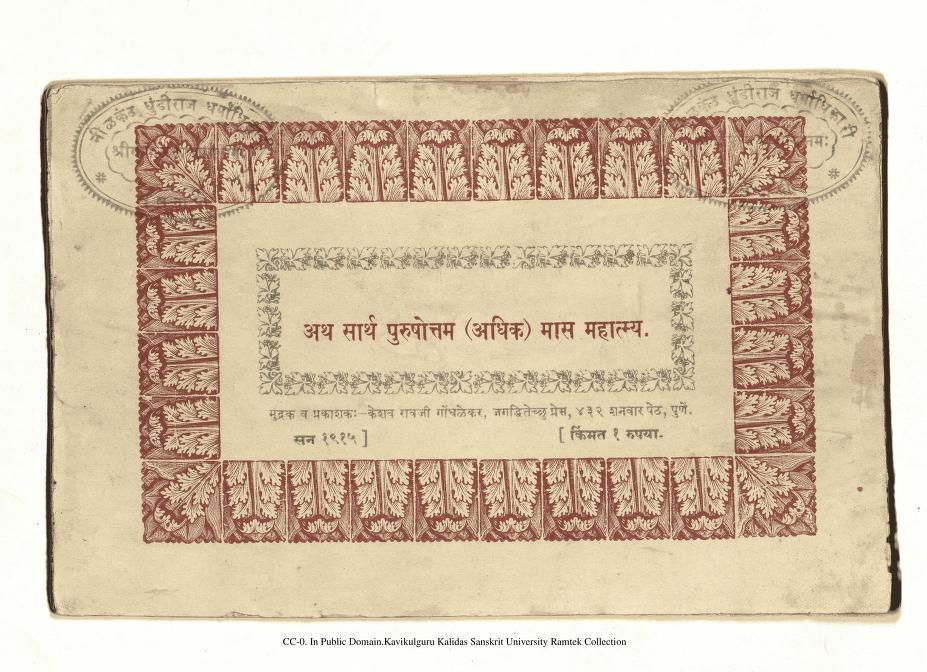 नीळकंठ धुंडीराज धर्माधिकारी
अथ सार्थ पुरुषोत्तम (अधिक) मास महात्म्य.
मुद्रक व प्रकाशकः–केशव रावजी गोंधळेकर, जगद्धितेच्छु प्रेस, ४३२ शनवार पेठ, पुणें.
सन १९१५ ] [ किंमत १ रुपया.
CC-0. In Public Domain.Kavikulguru Kalidas Sanskrit University Ramtek Collection